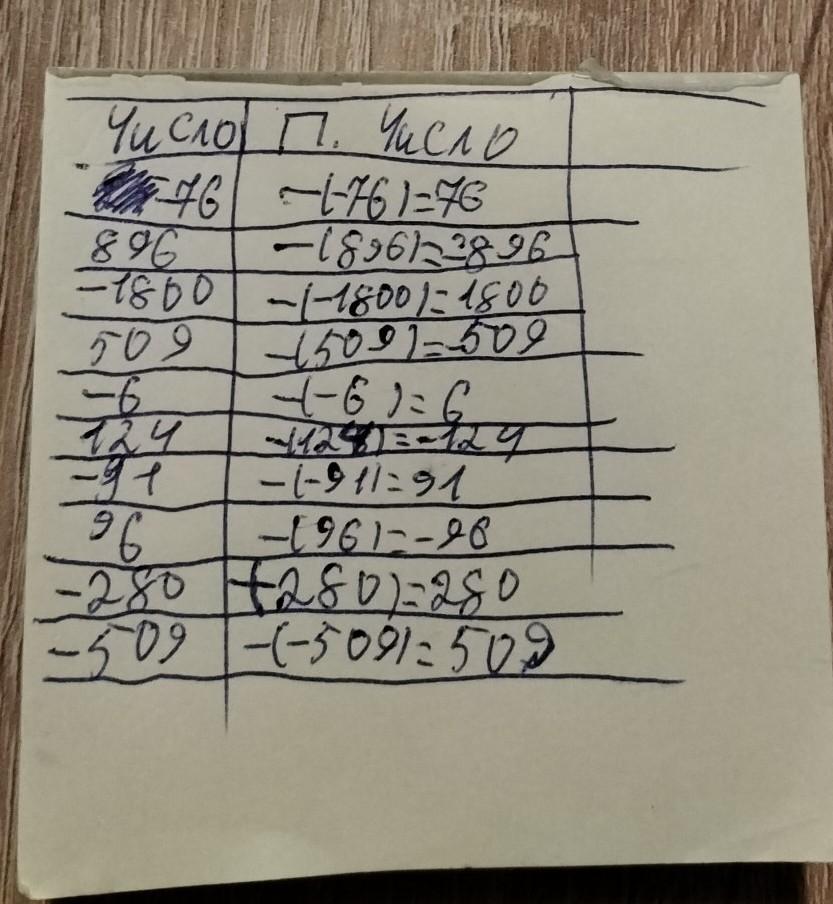 Число П. Число
-76 -(-76)=76
896 -(896)=-896
-1800 -(-1800)=1800
509 -(509)=-509
-6 -(-6)=6
124 -(124)=-124
-91 -(-91)=91
96 -(96)=-96
-280 -(-280)=280
-509 -(-509)=509